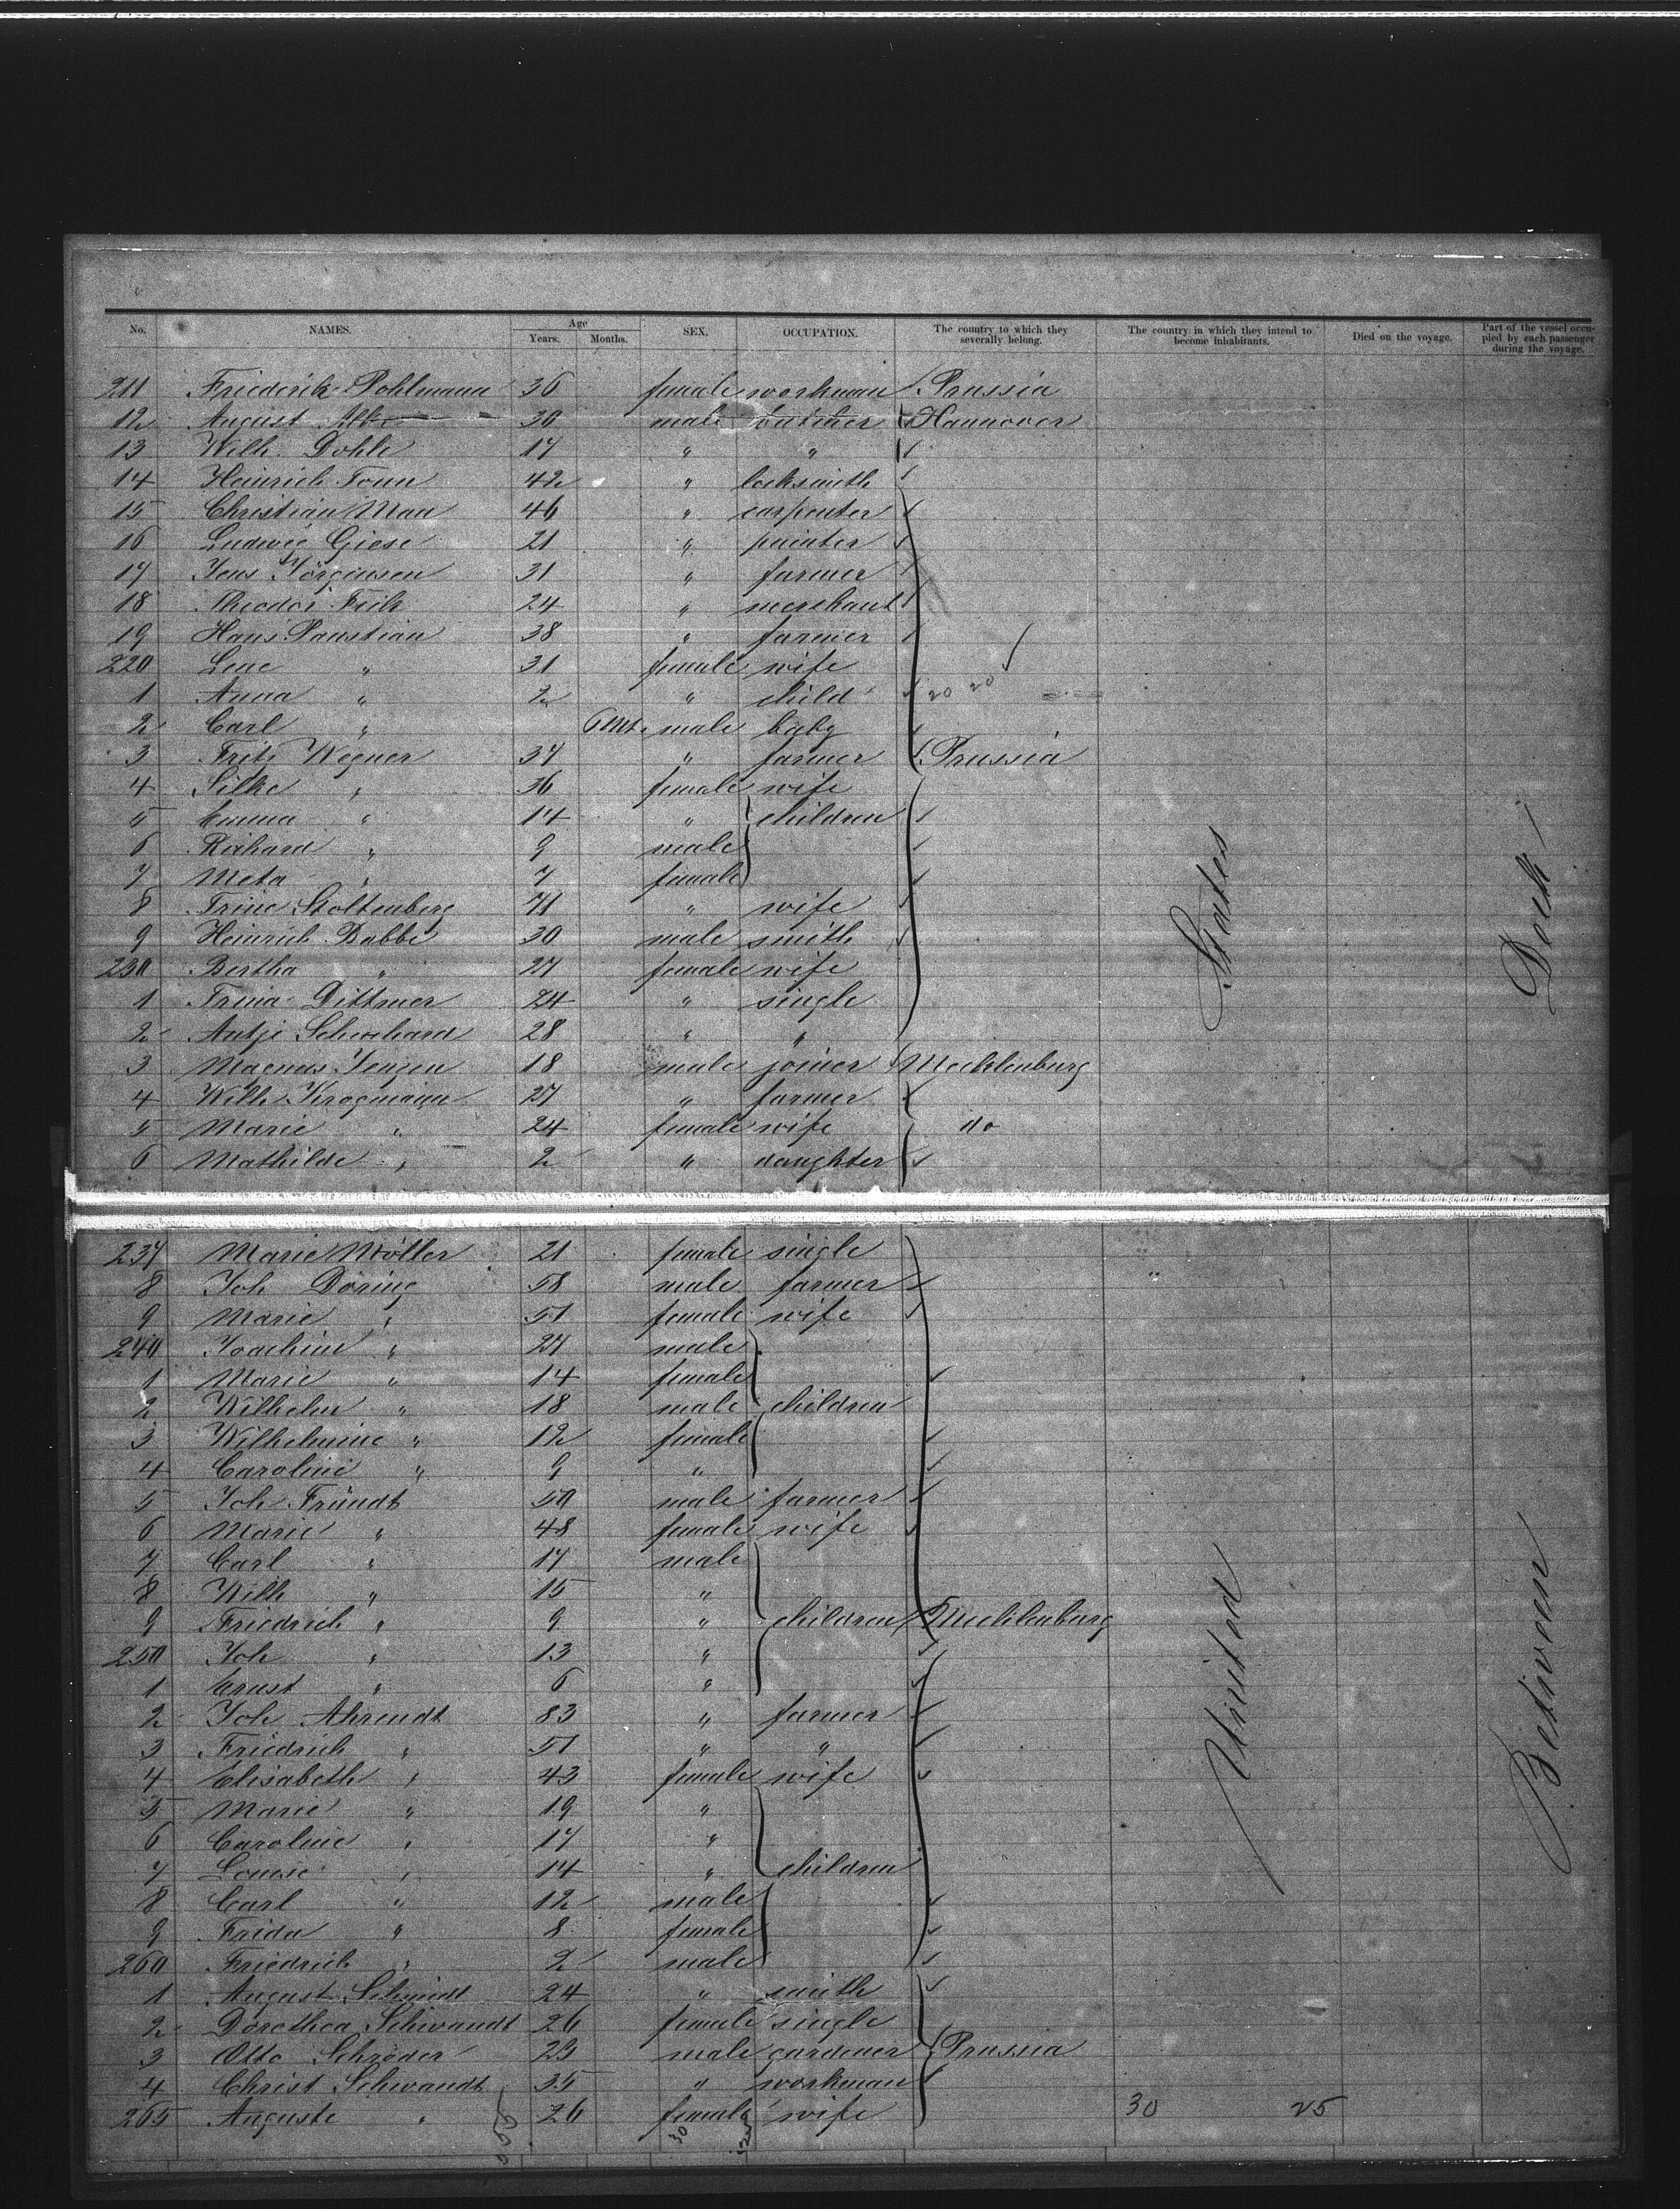 No. NAMES. Age Years. Months. SEX. OCCUPATION. The country to which they severally belong. The country in which they intend to become inhabitants. Died on the voyage. Part of the vessel occupied by each passenger during the voyage.
211 Friederik Pohlmann 36 female workman Prussia
12 August 30 male butcher Hannover
13 Wilh. Dohle 17 " "
14 Heinrich Tonn 42 " locksmith
15 Christian Man 46 " carpenter
16 Ludwig Giese 21 " painter
17 Jens Jörgensen 31 " farmer
18 Theodor 24 " merchant
19 Hans Paustian 38 " farmer
220 Lene " 31 female wife
1 Anna " 2 " child 20 20
2 Carl " 6 Mt. male baby
3 Fritz Wegner 37 " farmer Prussia
4 Silke " 36 female wife
5 Emma " 14 " children
6 Richard " 9 male
7 Meta " 7 female
8 Trine Stoltenberg 71 " wife
9 Heinrich Babbe 30 male smith
230 Bertha " 27 female wife
1 Trina Dittmer 24 " single
2 Antje 28 " "
3 Magnus Jenzen 18 male joiner Mecklenburg
4 Wilh Krogmann 27 " farmer
5 Marie " 24 female wife do
6 Mathilde " 2 " daughter
States
Deck
237 Marie Möller 21 female single
8 Joh Döring 58 male farmer "
9 Marie " 51 female wife
240 Joachim " 21 male
1 Marie " 14 female
2 Wilhelm " 18 male children
3 Wilhelmine " 12 female
4 Caroline " 9 "
5 Joh Fründt 50 male farmer
6 Marie " 48 female wife
7 Carl " 17 male
8 Wilh " 15 "
9 Friedrich " 9 " children Mecklenburg
250 Joh " 13 "
1 Ernst " 6 "
2 Joh Ahrendt 83 " farmer
3 Friedrich " 51 " "
4 Elisabeth " 43 female wife
5 Marie " 19 "
6 Caroline " 17 "
7 Louise " 14 " children
8 Carl " 12 male
9 Frida " 8 female
260 Friedrich " 2 male
1 August Schmidt 24 " smith
2 Dorothea Schwandt 26 female single
3 Otto Schröder 23 male gardener Prussia
4 Christ Schwandt 35 " workman
265 Auguste " 26 female wife 30 25
United
Between
30